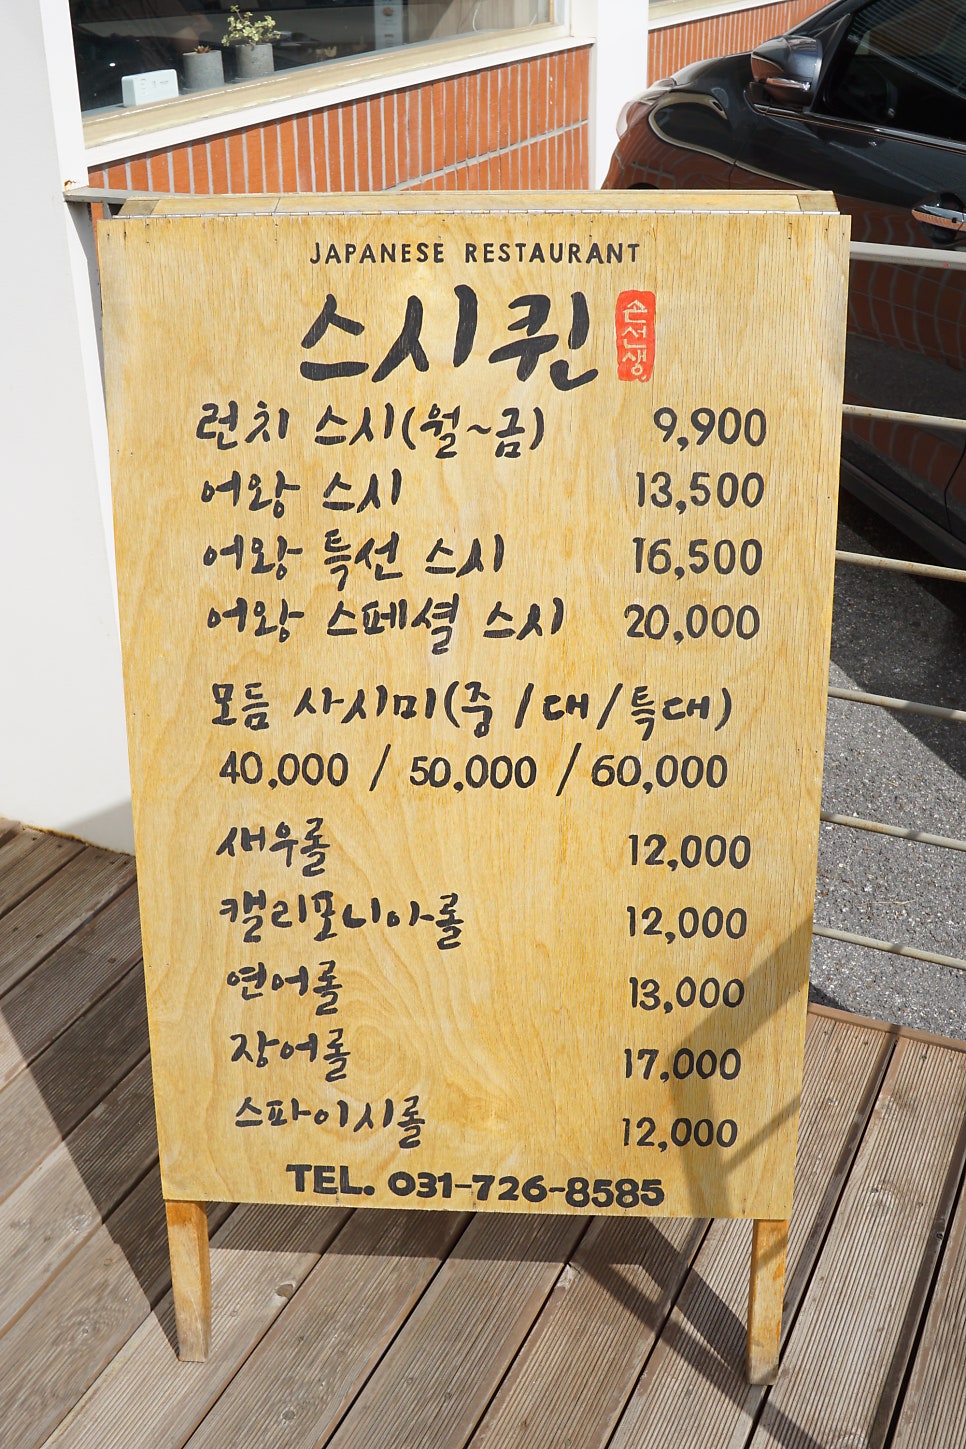 JAPANESE RESTAURANT
스시퀸 손선생
런치 스시(월~금) 9,900
어왕 스시 13,500
어왕 특선 스시 16,500
어왕 스페셜 스시 20,000
모듬 사시미(중/대/특대)
40,000 / 50,000 / 60,000
새우롤 12,000
캘리포니아롤 12,000
연어롤 13,000
장어롤 17,000
스파이시롤 12,000
TEL. 031-726-8585